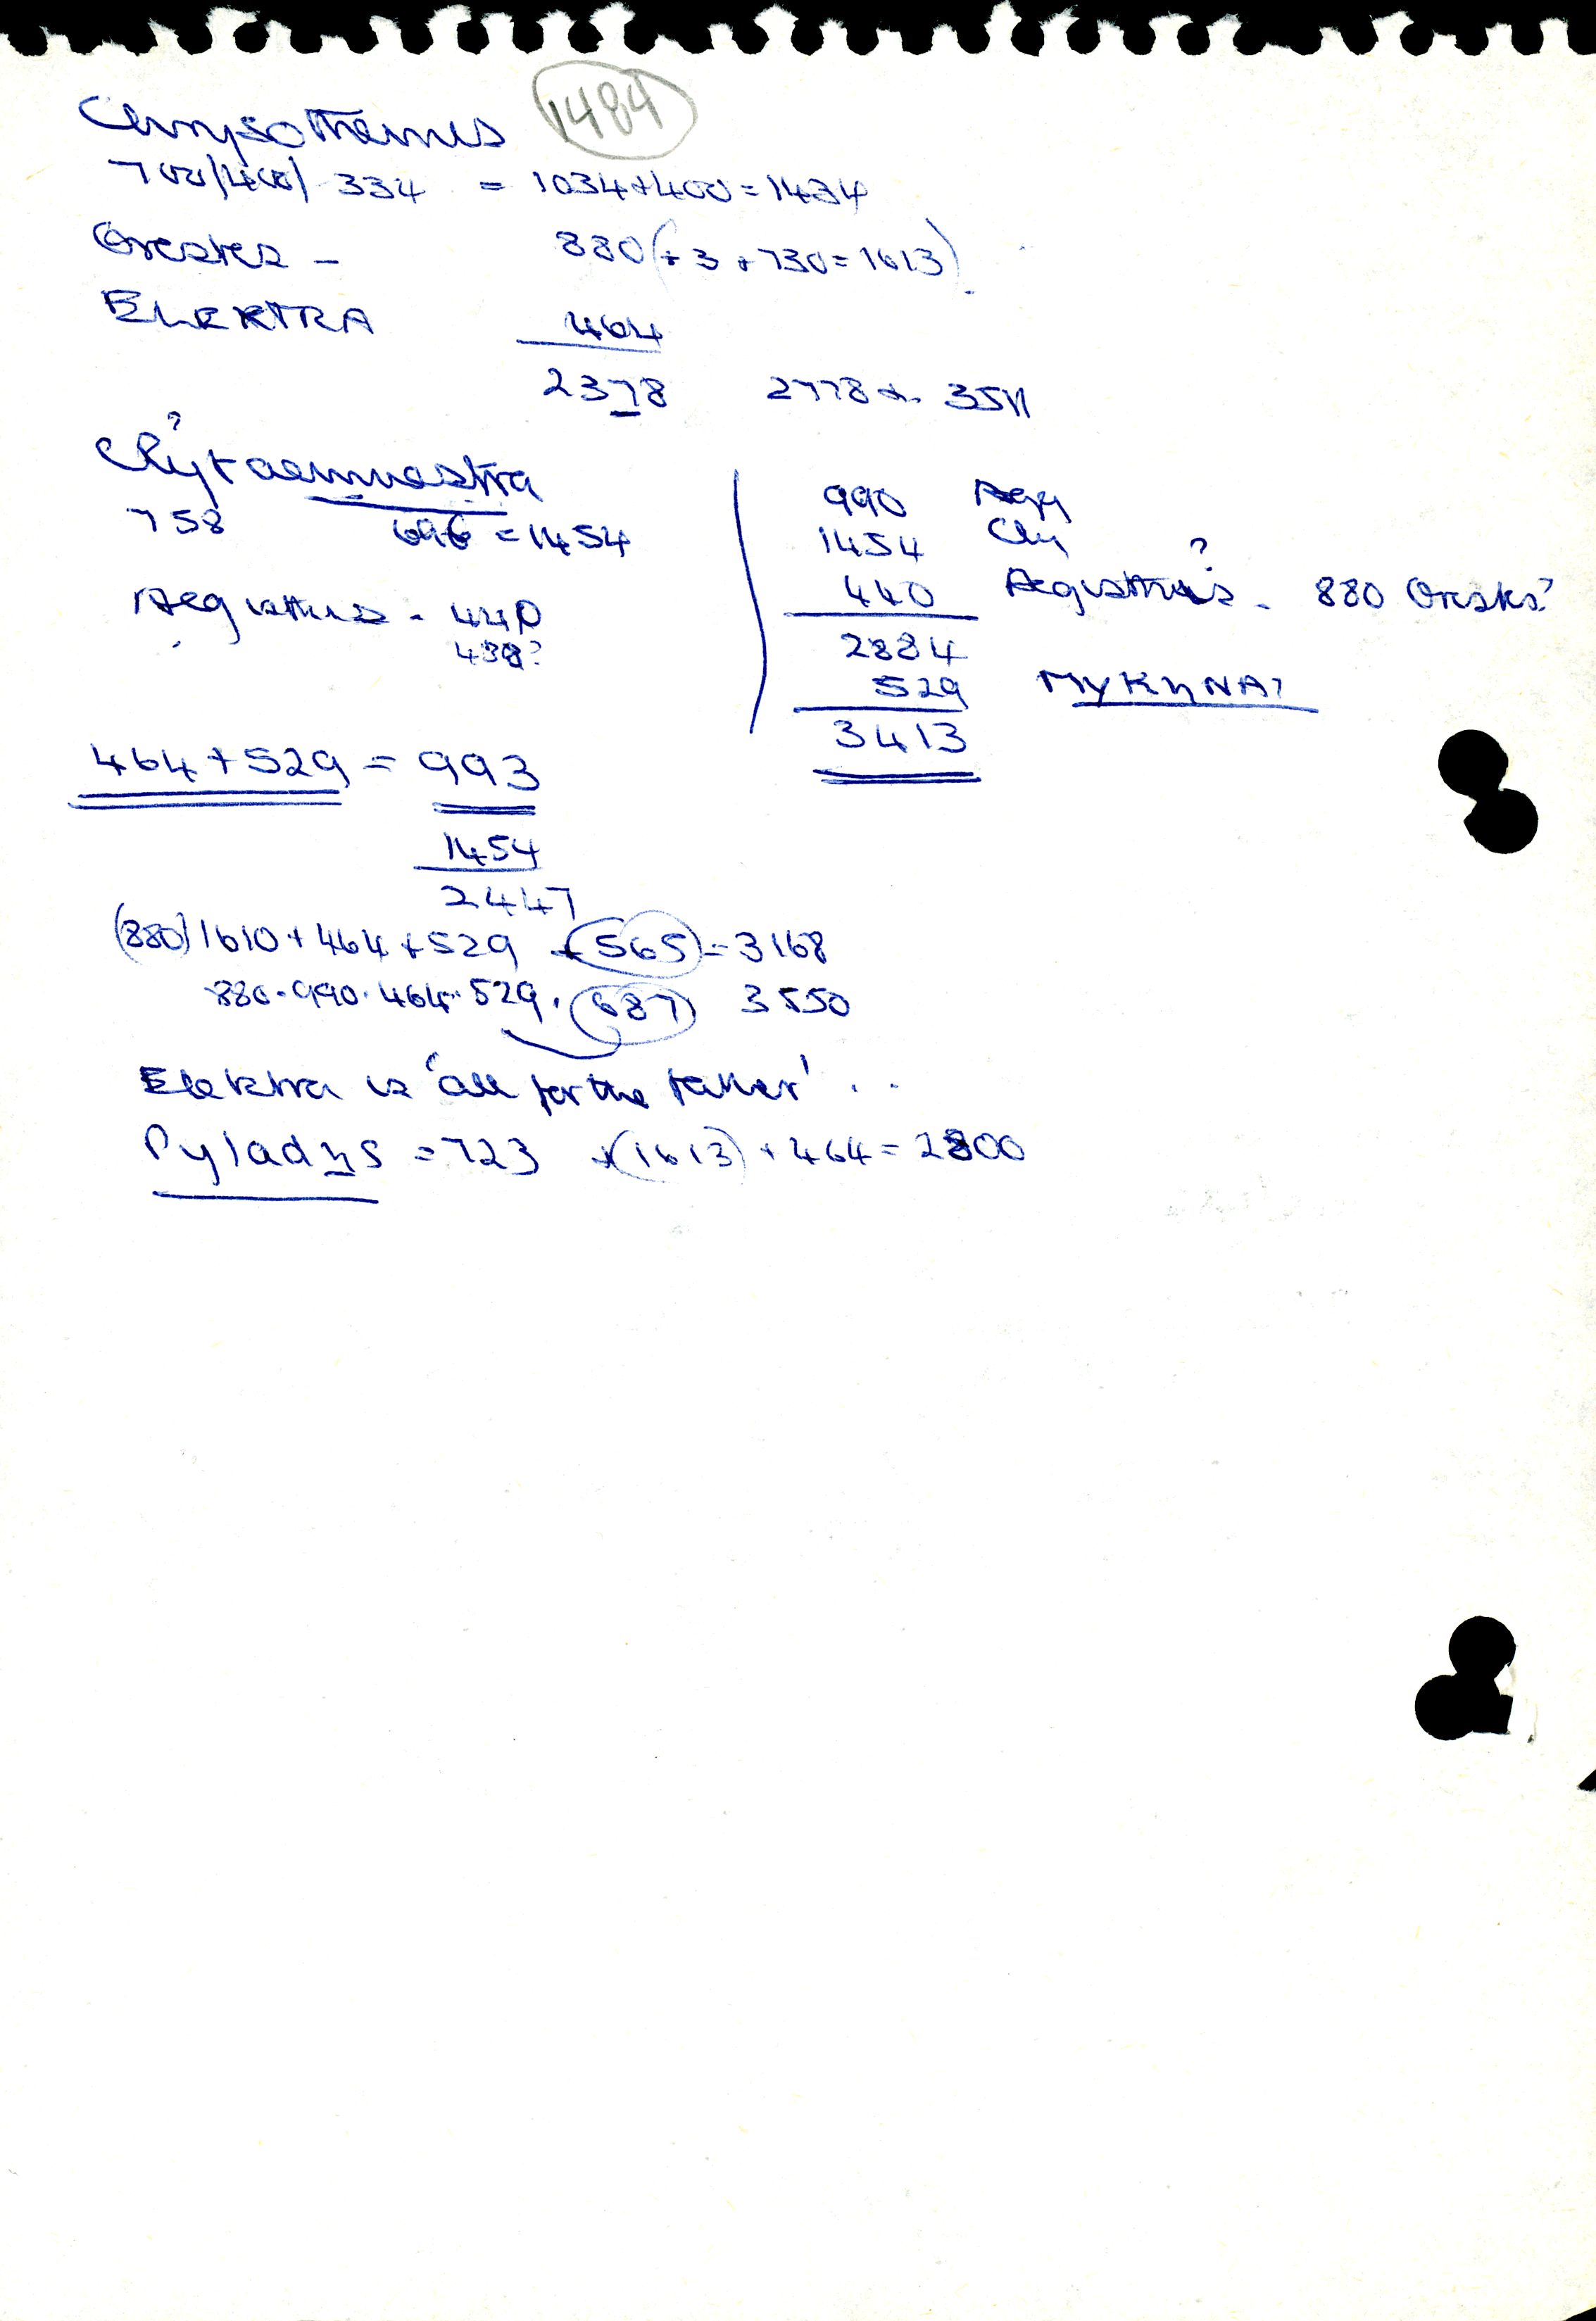 Chrysothemis 1484
700/(400) 334 = 1034+400=1434
Orestes - 880 (+3+730=1613)
ELEKTRA 464
2378 2778 + 3511
?
Clytaemnestra
758 696 = 1454
Aegisthus - 440
438?
990 Aga
1454 Cly
440 Aegisthus? - 880 Orestes?
2884
529 MYKηNAI
3413
464+529 = 993
1454
2447
(880) 1610+464+529 +565=3168
880.990.464.529. 687 3550
Elektra is 'all for the father' . .
Pyladηs = 723 +(1613)+464=2800